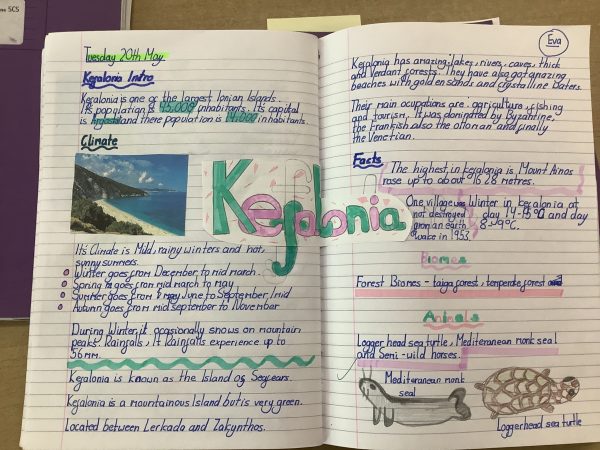 Tuesday 20th May
Kefalonia Intro
Kefalonia is one of the largest Ionian Islands.
Its population is 45,000 inhabitants. Its capital
is Argostoli and there population is 14,000 inhabitants.
Climate
Kefalonia
It's Climate is Mild, rainy winters and hot,
sunny summers.
Winter goes from December to mid march.
Spring goes from mid march to may
Summer goes from may June to September, mid
Autumn goes from mid September to November
During Winter, it occasionally snows on mountain
peaks. Rainfalls, It Rainfalls experience up to
56mm.
Kefalonia is known as the Island of
Kefalonia is a mountainous Island but is very green.
Located between Lerkada and Zakynthos.
Eva
Kefalonia has amazing lakes, rivers, caves, thick
and verdant forests. They have also got amazing
beaches with golden sands and crystalline waters.
Their main ocupations are: agriculture, fishing
and tourism. It was dominated by Byzantine,
the Frankish also the ottoman and finally
the Venetian.
Facts
The highest in kefalonia is Mount Ainos
rose up to about 1628 metres.
One village was
not destroyed
quake in 1953.
Winter in kefalonia at
day 14-15°C and day
8-9°C.
Biomes
Forest Biomes - taiga forest, temperate forest
Animals
Logger head sea turtle, Mediterranean monk seal
and Semi-wild horses.
Mediterranean monk
seal
Loggerhead sea turtle